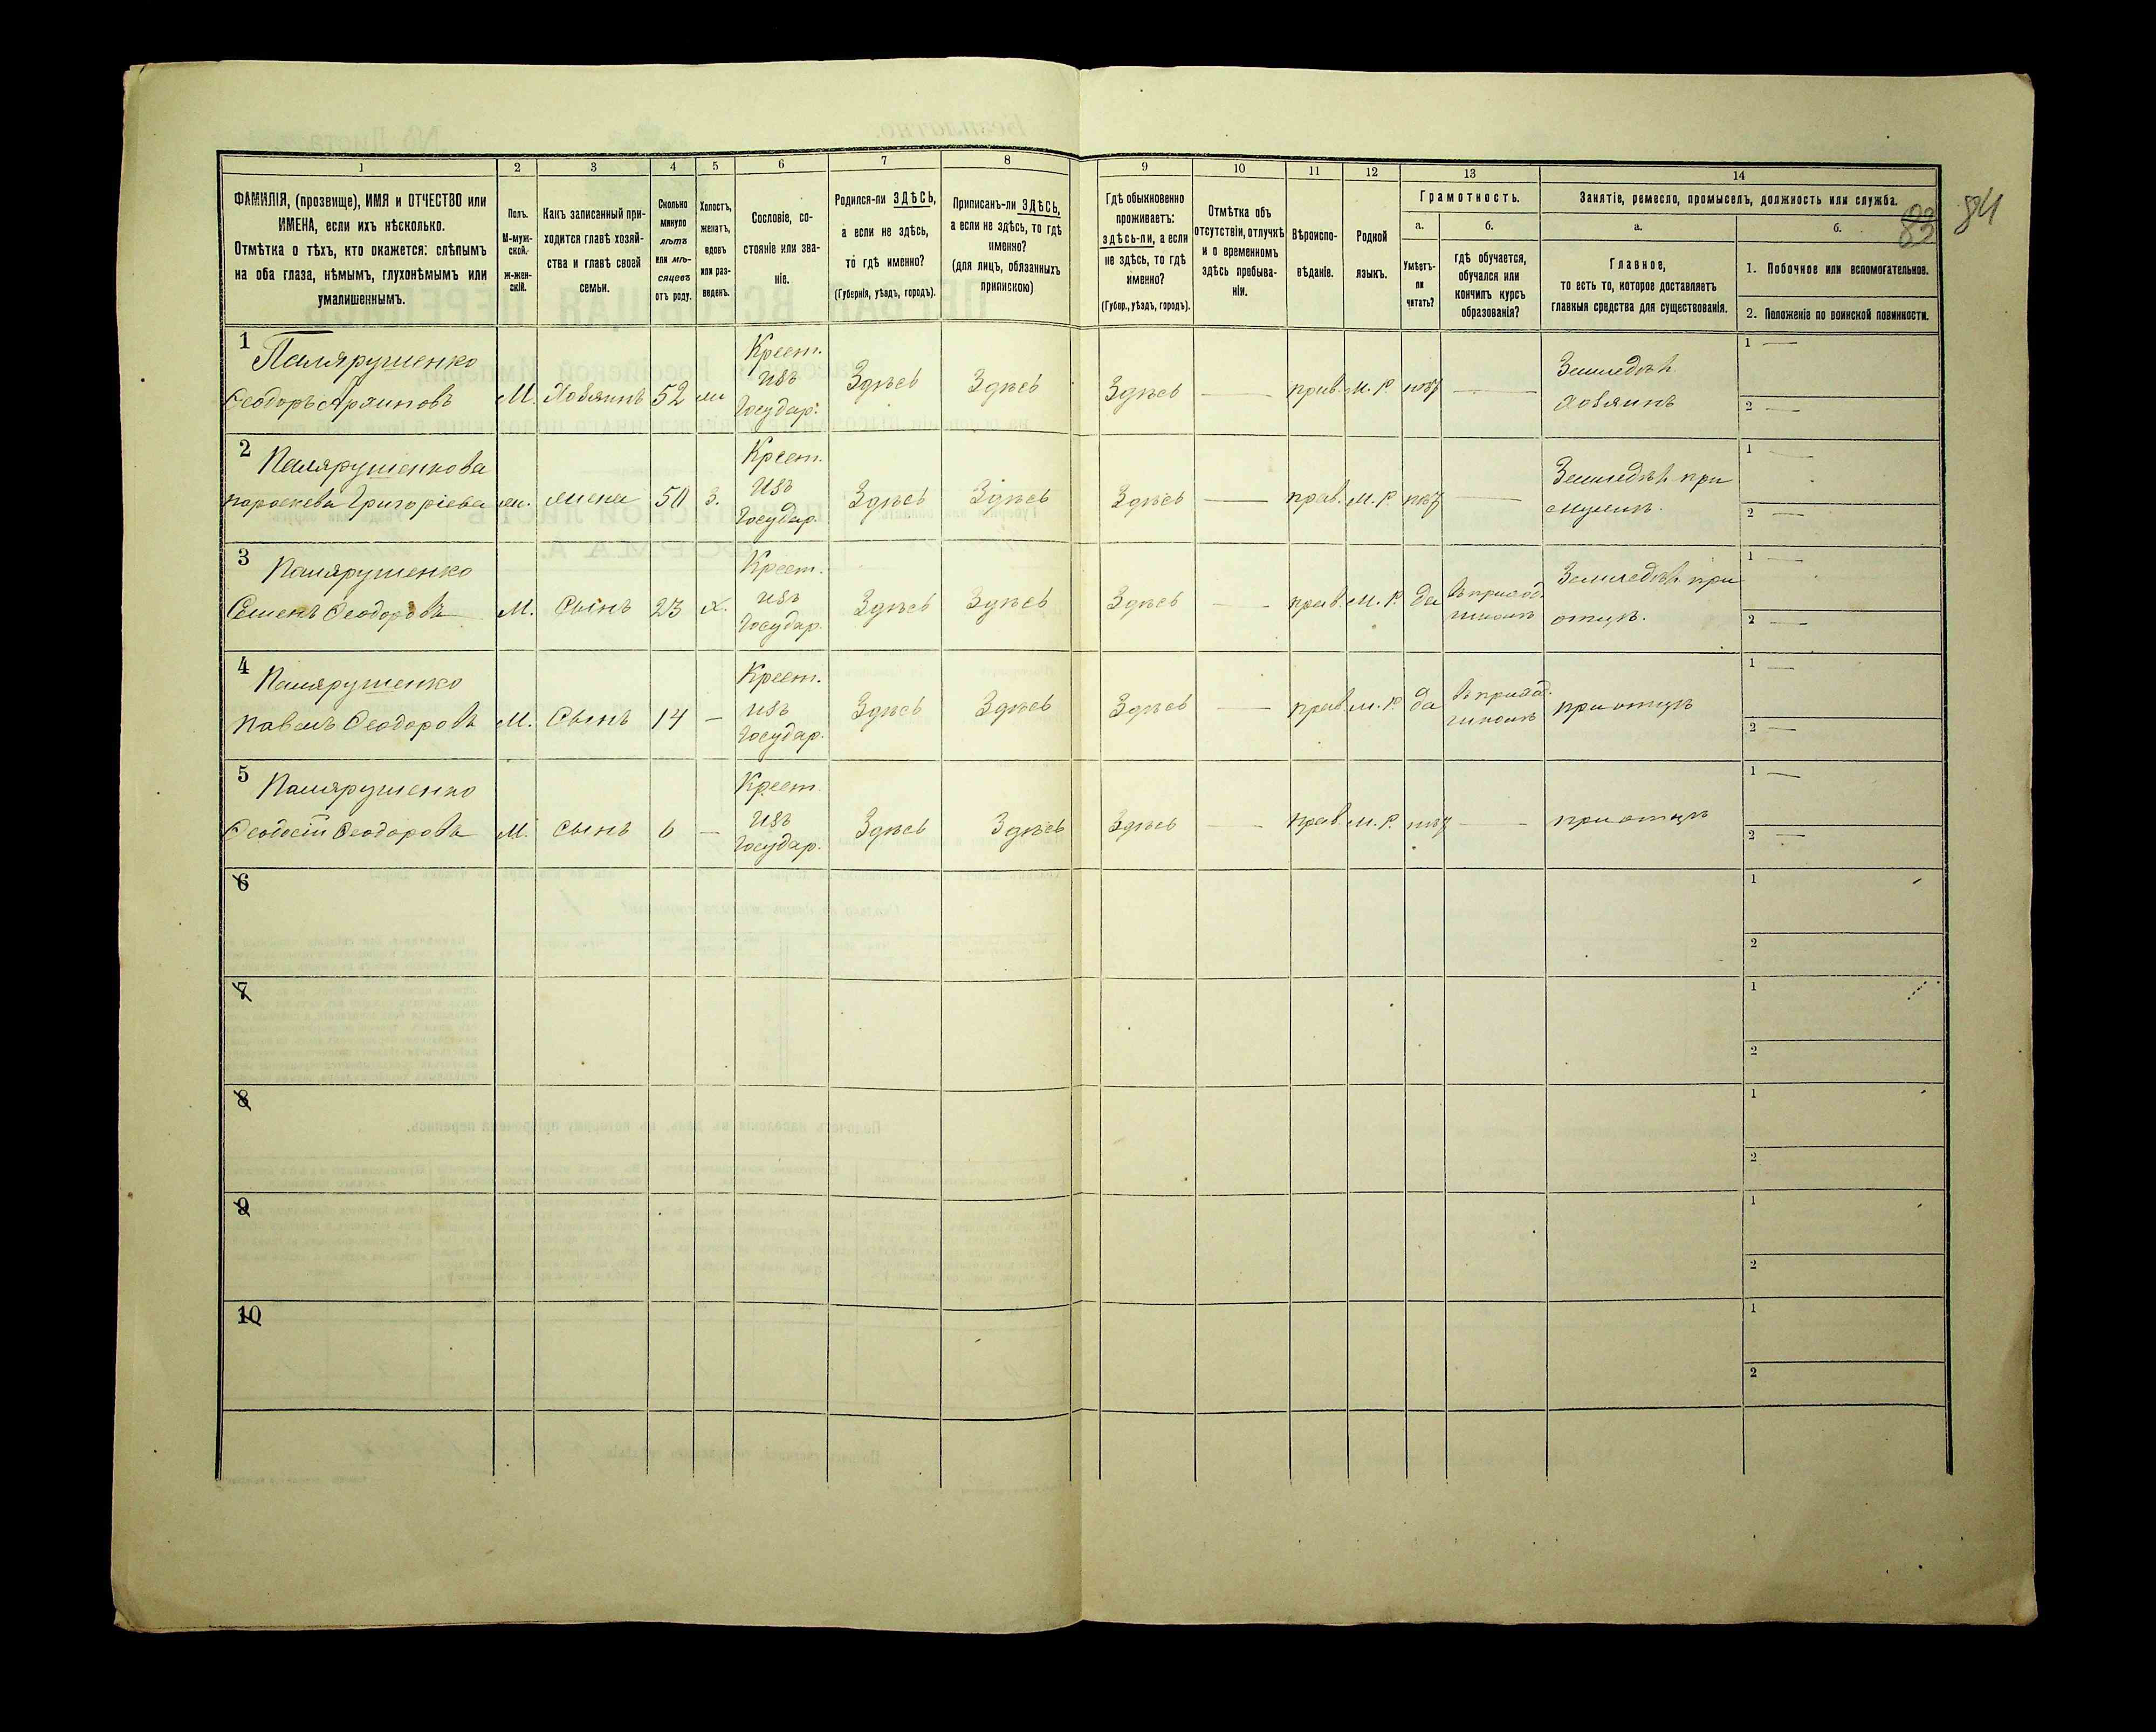 83 84
1 2 3 4 5 6 7 8 9 10 11 12 13 14
ФАМИЛІЯ, (прозвище), ИМЯ и ОТЧЕСТВО или
ИМЕНА, если ихъ нѣсколько.
Отмѣтка о тѣхъ, кто окажется: слѣпымъ
на оба глаза, нѣмымъ, глухонѣмымъ или
умалишеннымъ.
Полъ.
М-муж-
ской.
ж-жен-
скій.
Какъ записанный при-
ходится главѣ хозяй-
ства и главѣ своей
семьи.
Сколько
минуло
лѣтъ
или мѣ-
сяцевъ
отъ роду.
Холостъ,
женатъ,
вдовъ
или раз-
веденъ.
Сословіе, со-
стояніе или зва-
ніе.
Родился-ли ЗДѢСЬ,
а если не здѣсь,
то гдѣ именно?
(Губернія, уѣздъ, городъ).
Приписанъ-ли ЗДѢСЬ,
а если не здѣсь, то гдѣ
именно?
(для лицъ, обязанныхъ
припискою)
Гдѣ обыкновенно
проживаетъ:
здѣсь-ли, а если
не здѣсь, то гдѣ
именно?
(Губер., уѣздъ, городъ).
Отмѣтка объ
отсутствіи, отлучкѣ
и о временномъ
здѣсь пребыва-
ніи.
Вѣроиспо-
вѣданіе.
Родной
языкъ.
Грамотность.
а.
Умѣетъ-
ли
читать?
б.
гдѣ обучается,
обучался или
кончилъ курсъ
образованія?
Занятіе, ремесло, промыселъ, должность или служба.
а.
Главное,
то есть то, которое доставляетъ
главныя средства для существованія.
б.
1. Побочное или вспомогательное.
2. Положеніе по воинской повинности.
1 Палярушенко Крест. Земледѣл. 1 —
Ѳеодоръ Архиповъ М. Хозяинъ 52 ж изъ Здѣсь Здѣсь Здѣсь — прав. М. Р. нѣт — хозяинъ 2 —
Государ.
2 Палярушенкова Крест. Земледѣл. при 1 —
Параскева Григоріева ж. жена 50 з. изъ Здѣсь Здѣсь Здѣсь — прав. М. Р. нѣт — мужѣ. 2 —
Государ.
3 Палярушенко Крест. Земледѣл. при 1 —
Семенъ Ѳеодоровъ М. Сынъ 23 х. изъ Здѣсь Здѣсь Здѣсь — прав. М. Р. да въ приход. отцѣ. 2 —
Государ. школѣ
4 Палярушенко Крест. 1 —
Павелъ Ѳеодоровъ М. Сынъ 14 — изъ Здѣсь Здѣсь Здѣсь — прав. М. Р. да въ приход. при отцѣ 2 —
Государ. школѣ
5 Палярушенко Крест. 1 —
Ѳеодосій Ѳеодоровъ М. сынъ 6 — изъ Здѣсь Здѣсь Здѣсь — прав. М. Р. нѣт — при отцѣ 2 —
Государ.
6 1
2
7 1
2
8 1
2
9 1
2
10 1
2